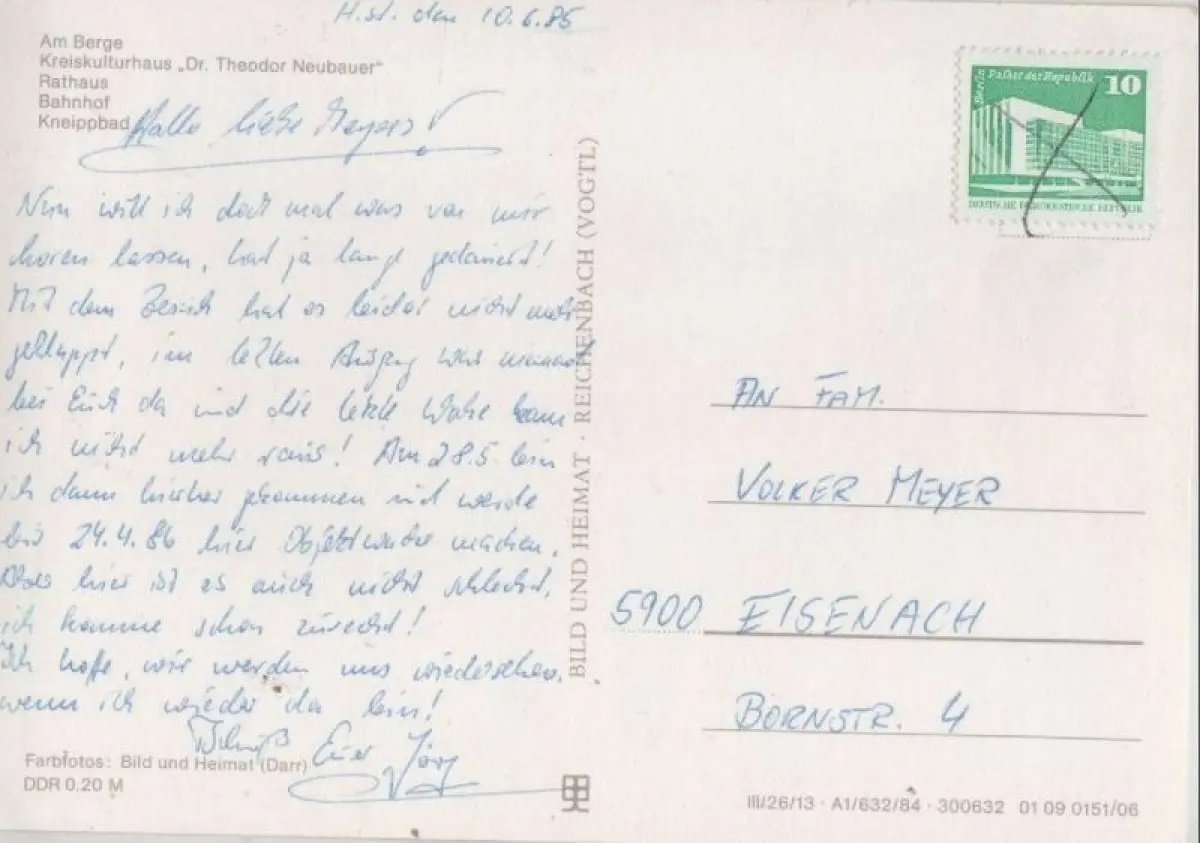 H.st. den 10.6.85
Am Berge
Kreiskulturhaus „Dr. Theodor Neubauer“
Rathaus
Bahnhof
Kneippbad
Hallo liebe Meyers
Nun will ich doch mal was von mir
hören lassen, hat ja lange gedauert!
Mit dem Besuch hat es leider nicht mehr
geklappt, im letzten war niemand
bei Euch da und die letzte Woche kam
ich nicht mehr raus! Am 28.5. bin
ich dann hierher gekommen und werde
bis 24.4.86 hier machen.
Aber hier ist es auch nicht schlecht,
ich komme schon zurecht!
Ich hoffe, wir werden uns wiedersehen,
wenn ich wieder da bin!
Tschüß Euer Jörg
Farbfotos: Bild und Heimat (Darr)
DDR 0,20 M
BILD UND HEIMAT · REICHENBACH (VOGTL)
Berlin Palast der Republik 10
DEUTSCHE DEMOKRATISCHE REPUBLIK
AN FAM.
VOLKER MEYER
5900 EISENACH
BORNSTR. 4
III/26/13 · A1/632/84 · 300632 01 09 0151/06